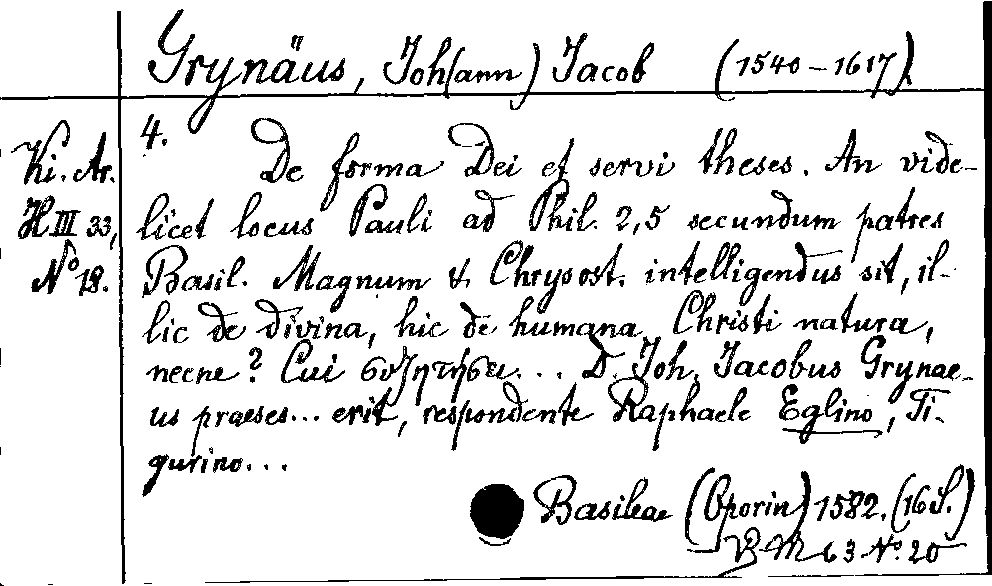 Grynäus, Joh(ann) Jacob (1540–1617)
Ki. Ar.
H III 33,
No 18.
4. De forma Dei et servi theses. An vide-
licet locus Pauli ad Phil. 2,5 secundum patres
Basil. Magnum & Chrysost. intelligendus sit, il-
lic de divina, hic de humana Christi natura,
necne? Cui συζητήσει... D. Joh. Jacobus Grynae-
us praeses... erit, respondente Raphaele Eglino, Ti-
gurino...
Basileae (Oporin) 1582. (16 S.)
63 No. 20